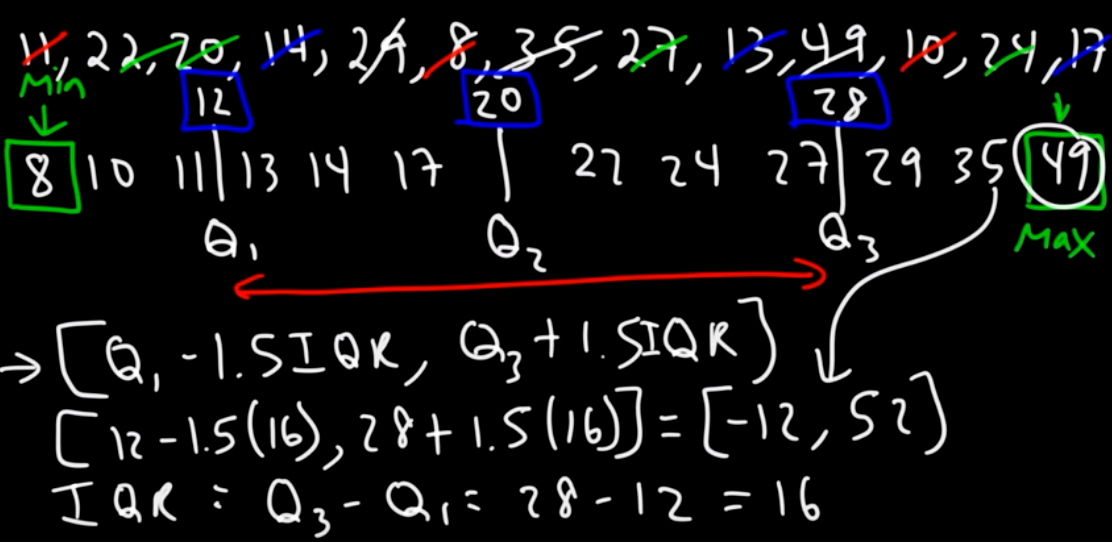 11, 22, 20, 14, 29, 8, 35, 27, 13, 49, 10, 24, 17
Min 12 20 28
8 10 11 13 14 17 22 24 27 29 35 49
Q1 Q2 Q3 Max
→ [Q1 - 1.5 IQR, Q3 + 1.5 IQR]
[12 - 1.5(16), 28 + 1.5(16)] = [-12, 52]
IQR = Q3 - Q1 = 28 - 12 = 16